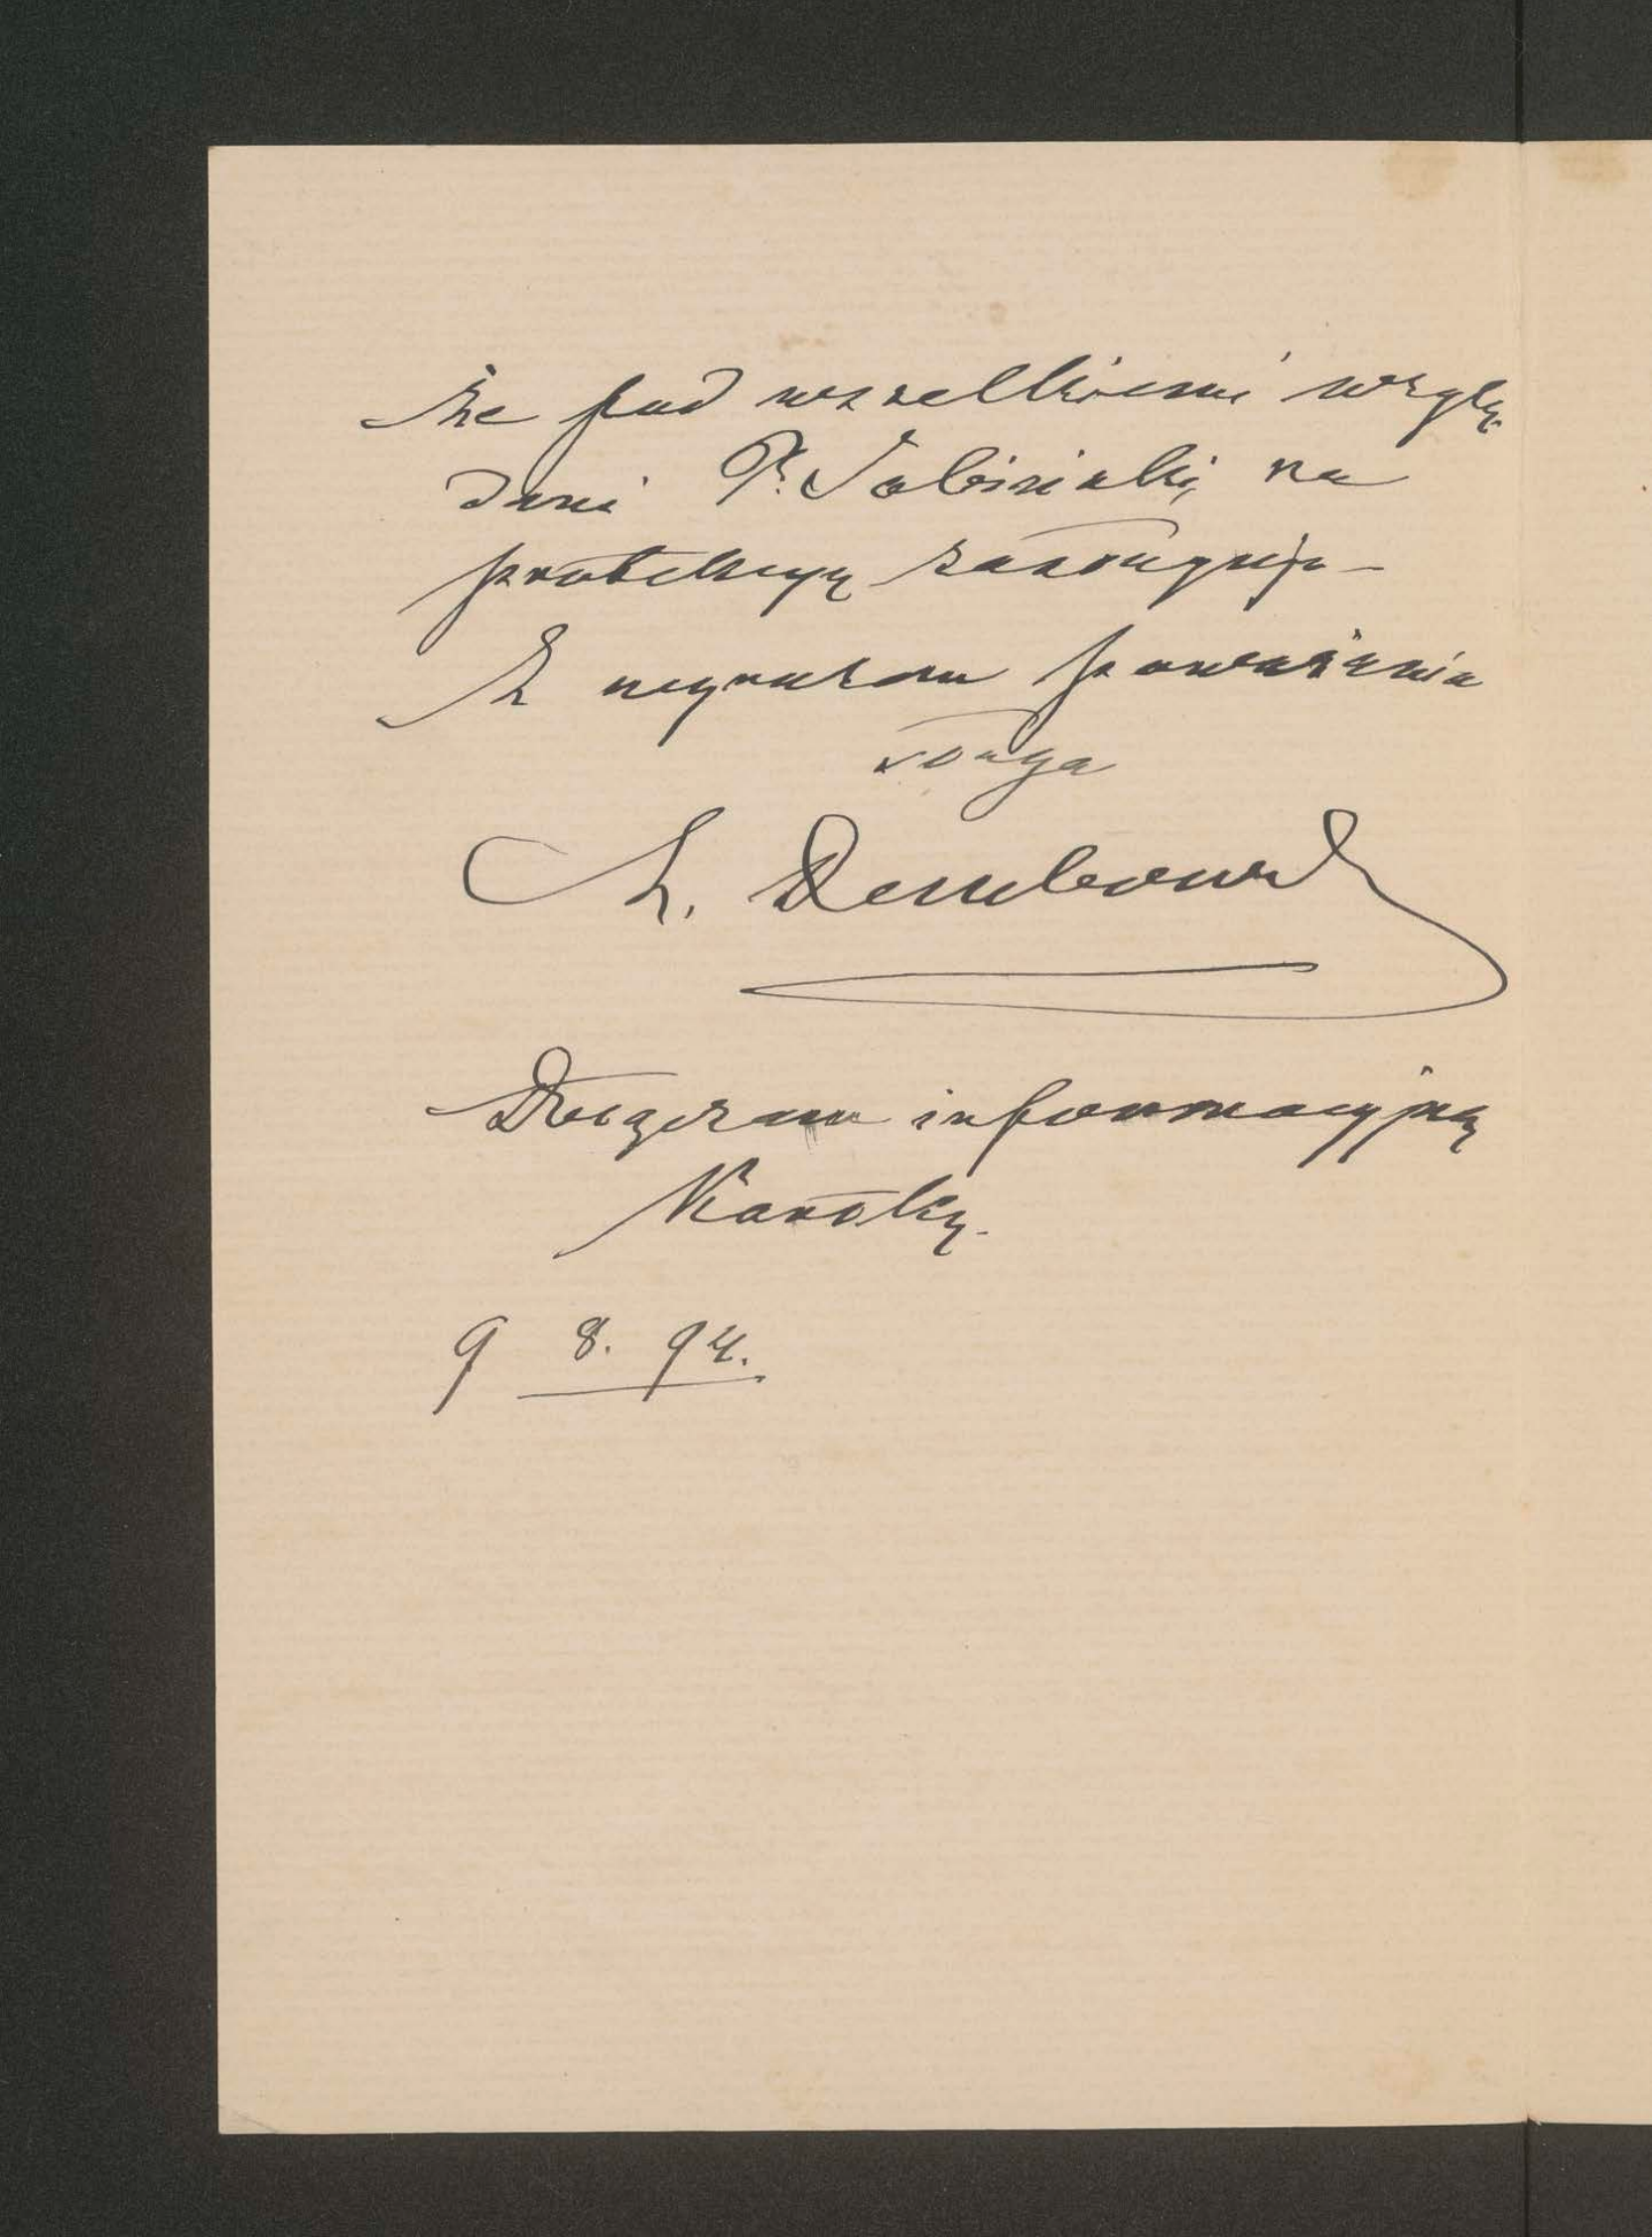 że pod wszelkiemi wzglę-
dami P. Sobiński, na
protekcyę zasługuje -
Z wyrazem poważania
sługa
L. Dembowski
Dołączam informacyjną
Kartkę.
9 8. 94.